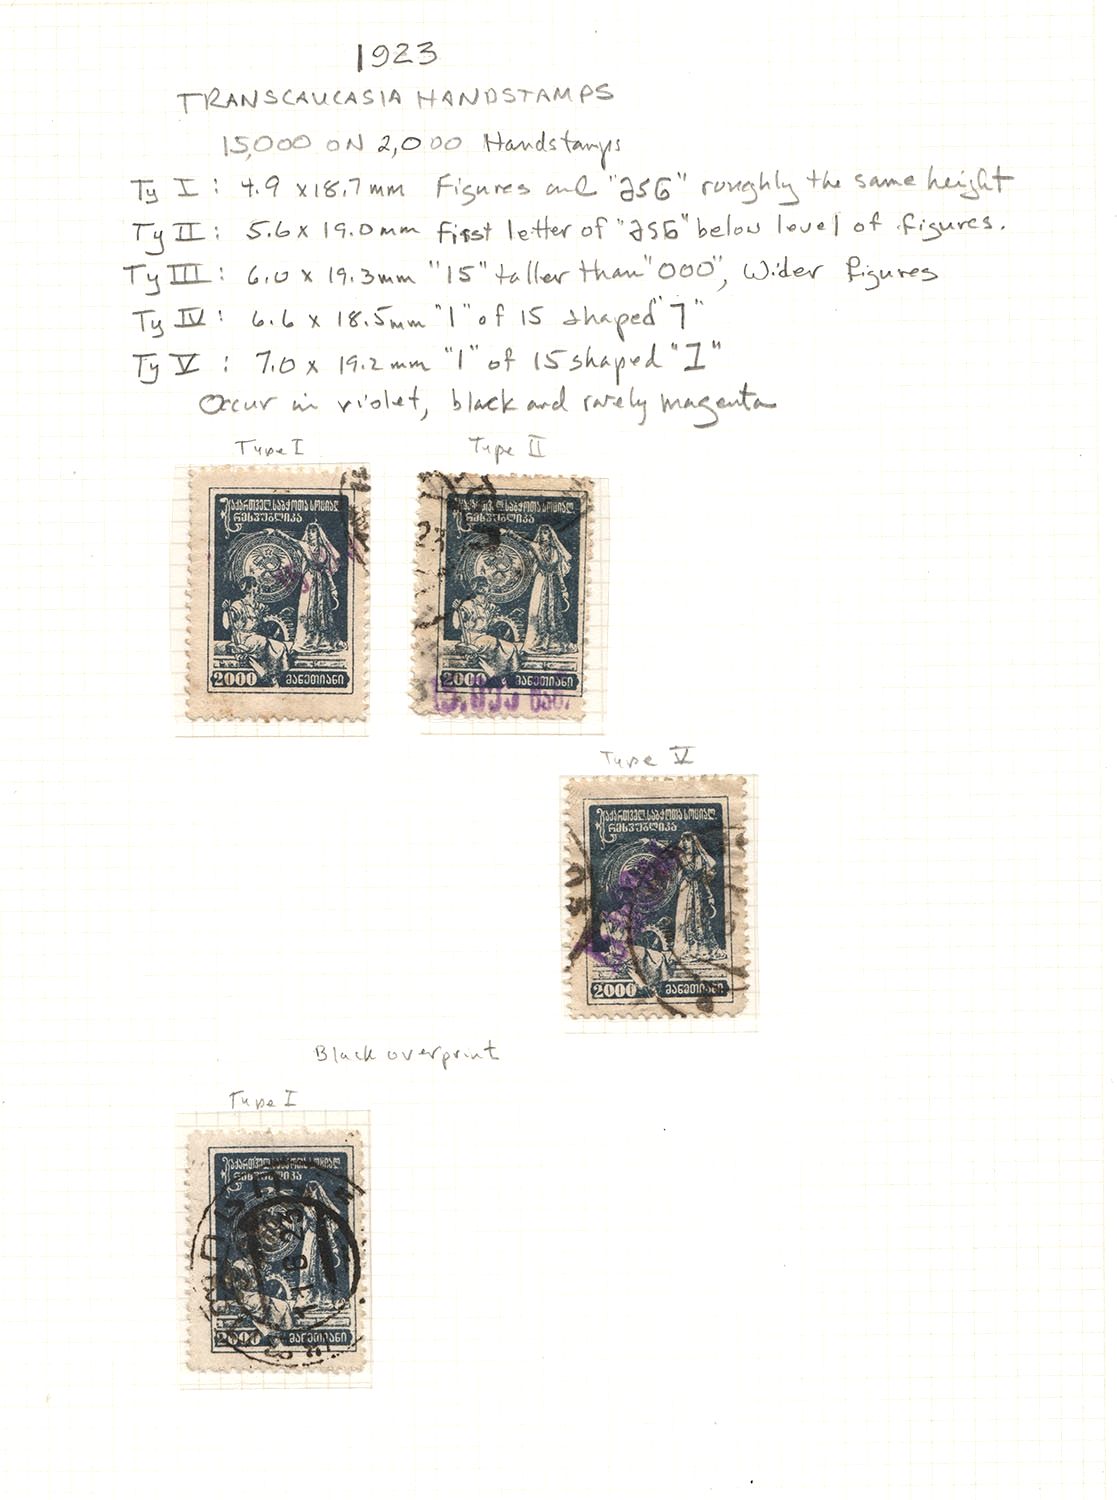 1923
TRANSCAUCASIA HANDSTAMPS
15,000 ON 2,000 Handstamps
Ty I : 4.9 x 18.7 mm Figures and "მან" roughly the same height
Ty II : 5.6 x 19.0 mm First letter of "მან" below level of figures.
Ty III : 6.0 x 19.3 mm "15" taller than "000", Wider figures
Ty IV : 6.6 x 18.5 mm "1" of 15 shaped "7"
Ty V : 7.0 x 19.2 mm "1" of 15 shaped "I"
Occur in violet, black and rarely magenta
Type I
Type II
საქართველ. საბჭოთა სოციალ.
რესპუბლიკა
2000 მანეთიანი
საქართველ. საბჭოთა სოციალ.
რესპუბლიკა
23
2000 მანეთიანი
15.000 მან.
Type V
საქართველ. საბჭოთა სოციალ.
რესპუბლიკა
2000 მანეთიანი
Black overprint
Type I
საქართველ. საბჭოთა სოციალ.
რესპუბლიკა
6 23
2000 მანეთიანი